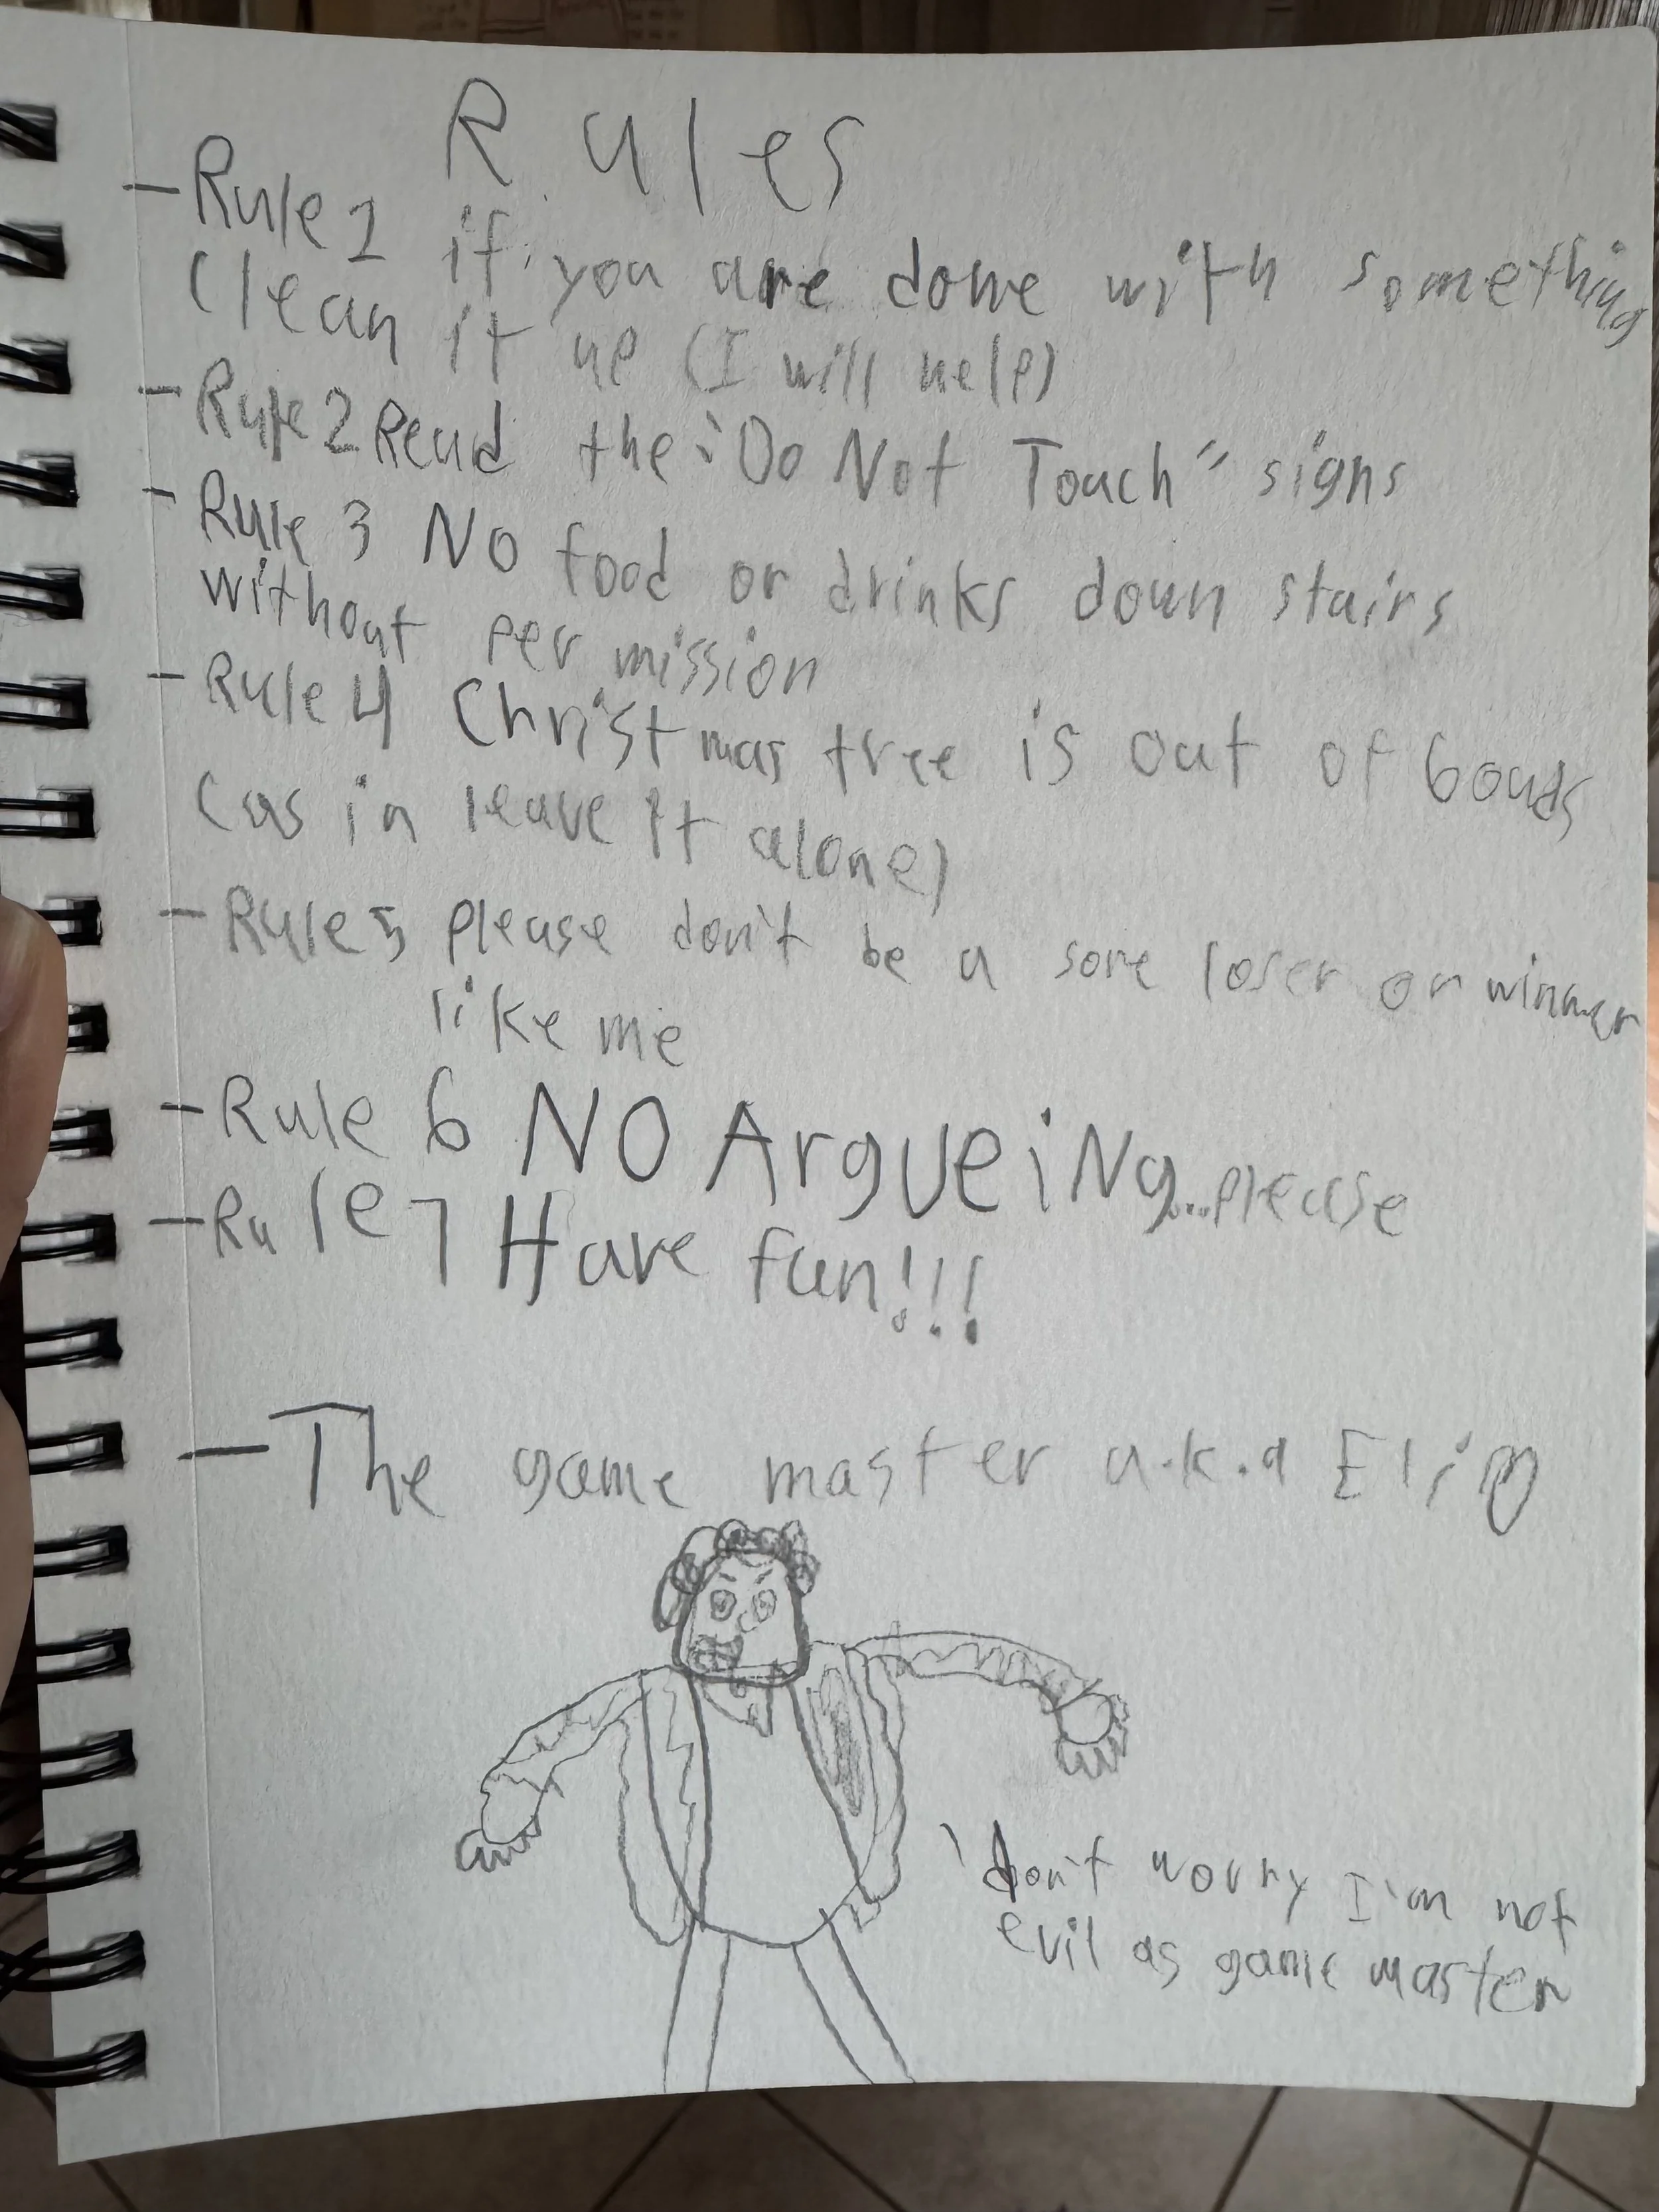 Rules
- Rule 1 if you are done with something
Clean it up (I will help)
- Rule 2 Read the "Do Not Touch" signs
- Rule 3 No food or drinks down stairs
without per mission
- Rule 4 Christmas tree is out of bouds
(as in leave it alone)
- Rule 5 please don't be a sore loser or winner
like me
- Rule 6 NO ArgueiNg...please
- Rule 7 Have fun!!!
- The game master a.k.a
'don't worry I'm not
evil as game master